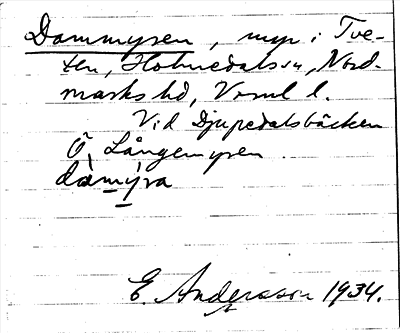 Dammyren, myr i Tve-
ten, Holmedals sn, Nord-
marks hd, Värml l.
Vid Djupedalsbäcken
Ö. Långemyren
dàmýra
E. Andersson 1934.